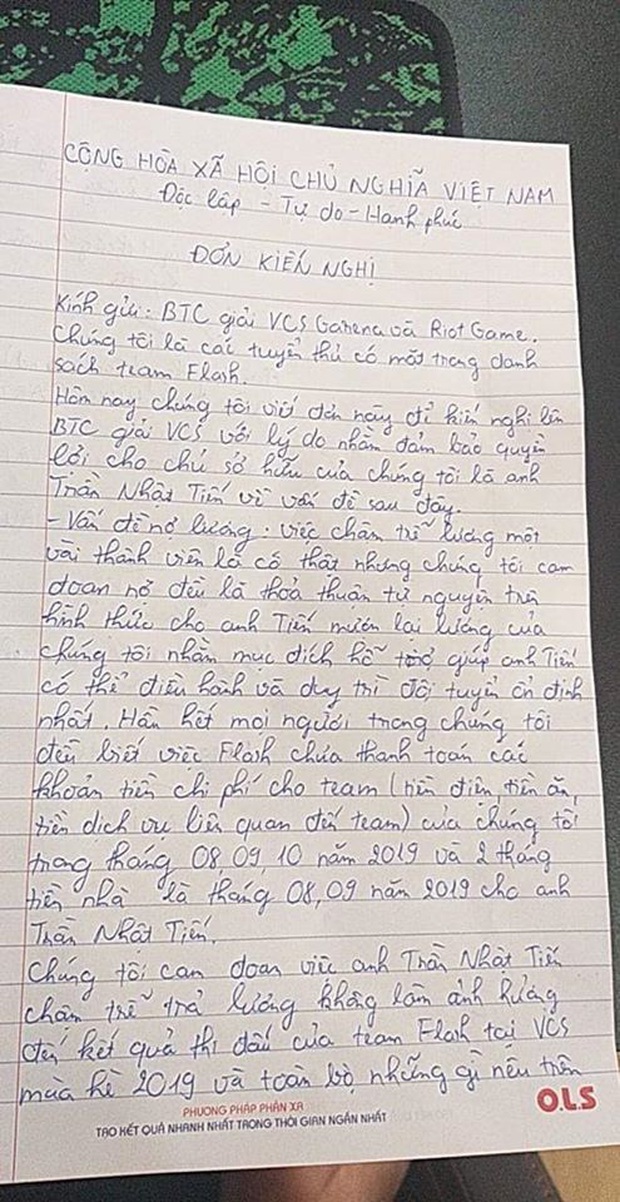 CỘNG HÒA XÃ HỘI CHỦ NGHĨA VIỆT NAM
Độc lập - Tự do - Hạnh phúc
ĐƠN KIẾN NGHỊ
Kính gửi: BTC giải VCS Garena và Riot Game.
Chúng tôi là các tuyển thủ có mặt trong danh
sách team Flash.
Hôm nay chúng tôi viết đơn này để kiến nghị lên
BTC giải VCS với lý do nhằm đảm bảo quyền
lợi cho chủ sở hữu của chúng tôi là anh
Trần Nhật Tiến về vấn đề sau đây.
- Vấn đề nợ lương: việc chậm trễ lương một
vài thành viên là có thật nhưng chúng tôi cam
đoan nó đều là thoả thuận tự nguyện trên
hình thức cho anh Tiến mượn lại lương của
chúng tôi nhằm mục đích hỗ trợ giúp anh Tiến
có thể điều hành và duy trì đội tuyển ổn định
nhất. Hầu hết mọi người trong chúng tôi
đều biết việc Flash chưa thanh toán các
khoản tiền chi phí cho team (tiền điện, tiền ăn,
tiền dịch vụ liên quan đến team) của chúng tôi
trong tháng 08, 09, 10 năm 2019 và 2 tháng
tiền nhà là tháng 08, 09 năm 2019 cho anh
Trần Nhật Tiến.
Chúng tôi cam đoan việc anh Trần Nhật Tiến
chậm trễ trả lương không làm ảnh hưởng
đến kết quả thi đấu của team Flash tại VCS
mùa hè 2019 và toàn bộ những gì nêu trên
PHƯƠNG PHÁP PHẢN XẠ
TẠO KẾT QUẢ NHANH NHẤT TRONG THỜI GIAN NGẮN NHẤT
O.L.S